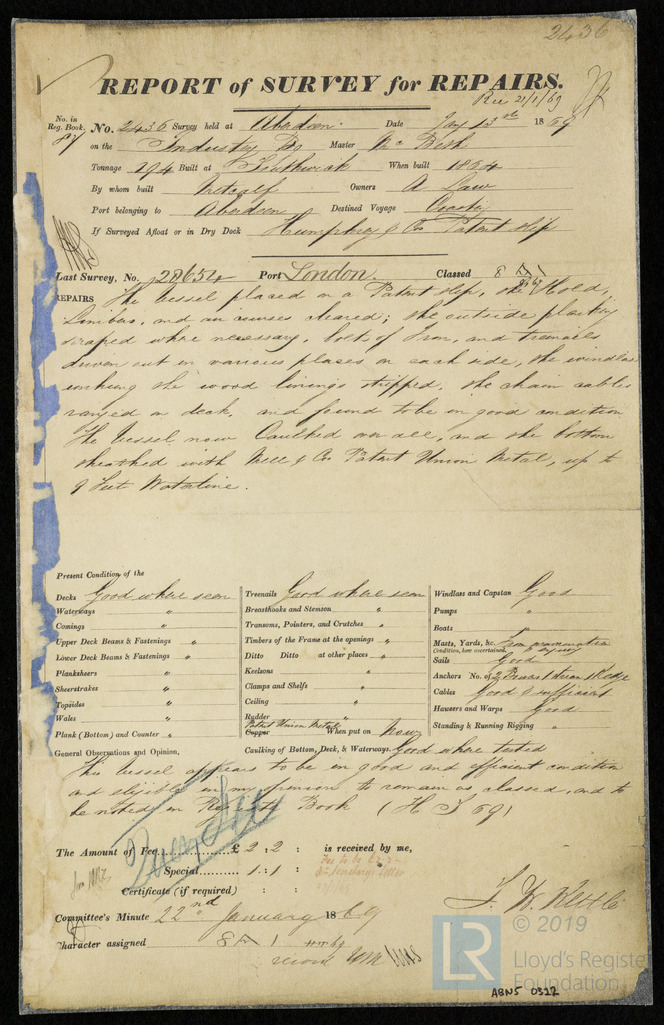 2436
REPORT of SURVEY for REPAIRS.
Rec 21/1/69
No. in Reg. Book. No. 2436 Survey held at Aberdeen Date Jany 13th 1869
on the Industry Bg Master Mc Beth
Tonnage 194 Built at Southwick When built 1854
By whom built Metcalf Owners A Law
Port belonging to Aberdeen Destined Voyage Coasting
If Surveyed Afloat or in Dry Dock Humphrey & Co Patent Slip
Last Survey, No. 28654 Port London. Classed 8 A 1
REPAIRS The vessel placed on a Patent slip, the Hold,
Limbers, and air courses cleared; the outside planking
scraped where necessary, bolts of Iron, and treenails
driven out in various places on each side, the windlass
unhung the wood linings stripped, the chain cables
ranged on deck, and found to be in good condition
The Vessel now Caulked over all, and the bottom
sheathed with & Co Patent Union Metal, up to
9 feet Waterline.
Present Condition of the
Decks Good where seen
Waterways "
Comings "
Upper Deck Beams & Fastenings "
Lower Deck Beams & Fastenings "
Planksheers "
Sheerstrakes "
Topsides "
Wales "
Plank (Bottom) and Counter "
Treenails Good where seen
Breasthooks and Stemson "
Transoms, Pointers, and Crutches "
Timbers of the Frame at the openings "
Ditto Ditto at other places "
Keelsons "
Clamps and Shelfs "
Ceiling "
Rudder "
Patent Union Metal
Copper When put on Now
Caulking of Bottom, Deck, & Waterways. Good where tested
Windlass and Capstan Good
Pumps "
Boats "
Masts, Yards, &c. From examination
Condition, how ascertained
Sails Good
Anchors No. of 2 Bowers 1 Stream 1 Kedge
Cables Good & sufficient
Hawsers and Warps Good
Standing & Running Rigging "
General Observations and Opinion,
This vessel appears to be in good and efficient condition
and eligible in my opinion to remain as classed, and to
be noted in Register Book
The Amount of Fee............£ 2 : 2 : is received by me,
Special.......... 1 : 1 :
Certificate (if required) : :
Committee's Minute 22nd January 1869
Character assigned 8 A 1
ABN5 0312
LR
© 2019
Lloyd's Register
Foundation